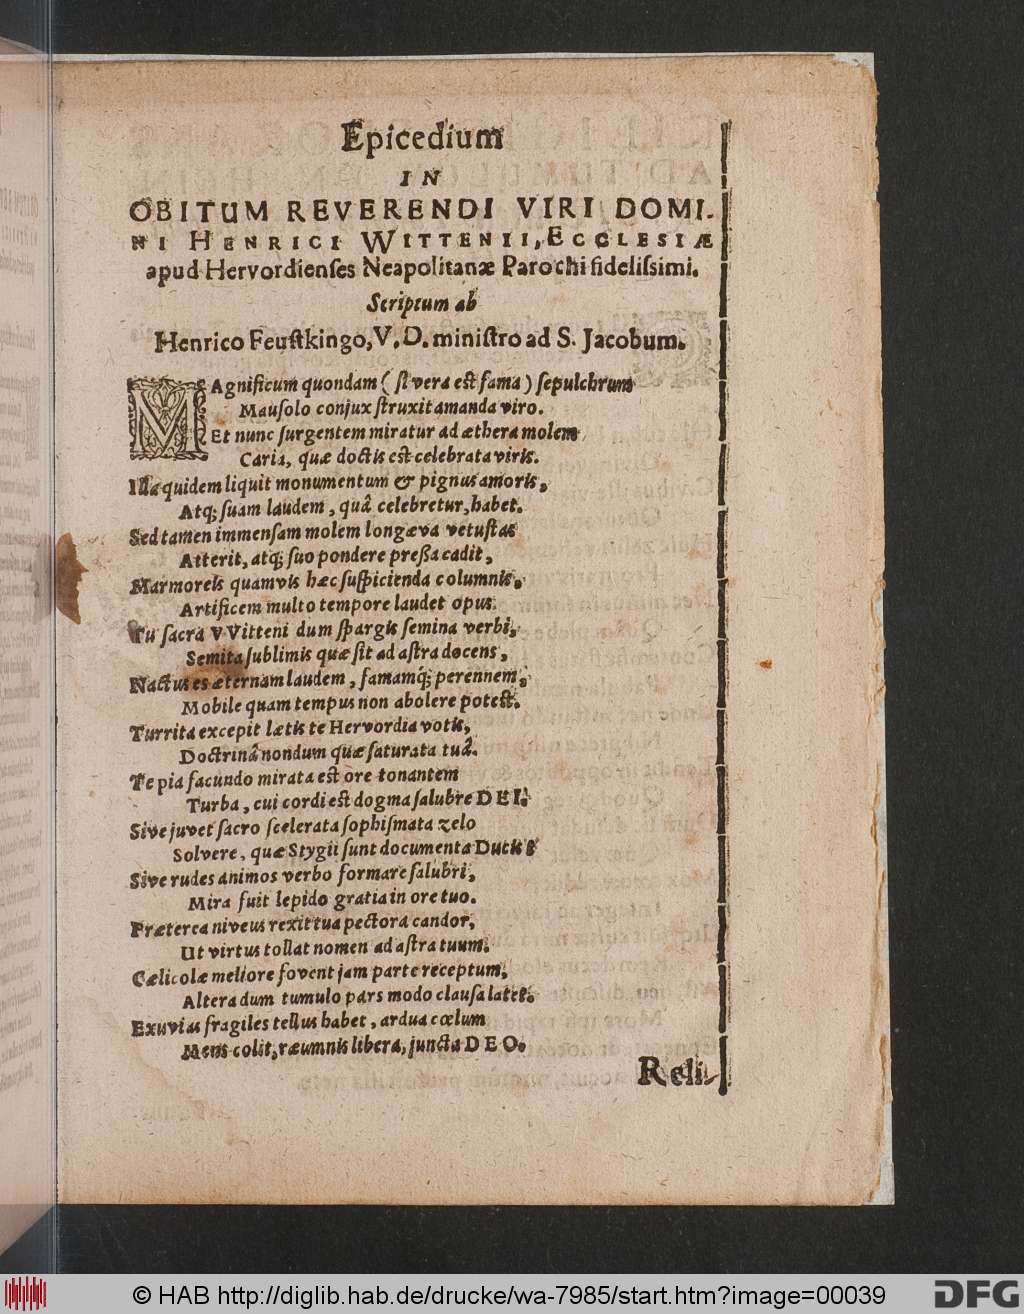 Epicedium
IN
OBITUM REVERENDI VIRI DOMI-
NI HENRICI WITTENII, ECCLESIÆ
apud Hervordienſes Neapolitanæ Parochi fideliſsimi.
Scriptum ab
Henrico Feuſtkingo, V. D. miniſtro ad S. Jacobum.
MAgnificum quondam ( ſi vera eſt fama ) ſepulchrum
Mauſolo conjux ſtruxit amanda viro.
Et nunc ſurgentem miratur ad æthera molem
Caria, quæ doctis est celebrata viris.
Illa quidem liquit monumentum & pignus amoris,
Atq; ſuam laudem, quâ celebretur, habet.
Sed tamen immenſam molem longæva vetuſtas
Atterit, atq; ſuo pondere preßa cadit,
Marmoreis quamvis hæc ſuſpicienda columnis,
Artificem multo tempore laudet opus.
Tu ſacra VVitteni dum ſpargis ſemina verbi,
Semita ſublimis quæ ſit ad aſtra docens,
Nactus es æternam laudem, famamq́; perennem,
Mobile quam tempus non abolere poteſt.
Turrita excepit lætis te Hervordia votis,
Doctrinâ nondum quæ ſaturata tuâ.
Te pia facundo mirata eſt ore tonantem
Turba, cui cordi eſt dogma ſalubre DEI.
Sive juvet ſacro ſcelerata ſophiſmata zelo
Solvere, quæ Stygii ſunt documenta Ducis;
Sive rudes animos verbo formare ſalubri,
Mira fuit lepido gratia in ore tuo.
Præterea niveus rexit tua pectora candor,
Ut virtus tollat nomen ad aſtra tuum.
Cælicolæ meliore fovent jam parte receptum,
Altera dum tumulo pars modo clauſa latet.
Exuvias fragiles tellus habet, ardua cœlum
Mens colit, ræumnis libera, juncta DEO.
Reli-
© HAB http://diglib.hab.de/drucke/wa-7985/start.htm?image=00039
DFG